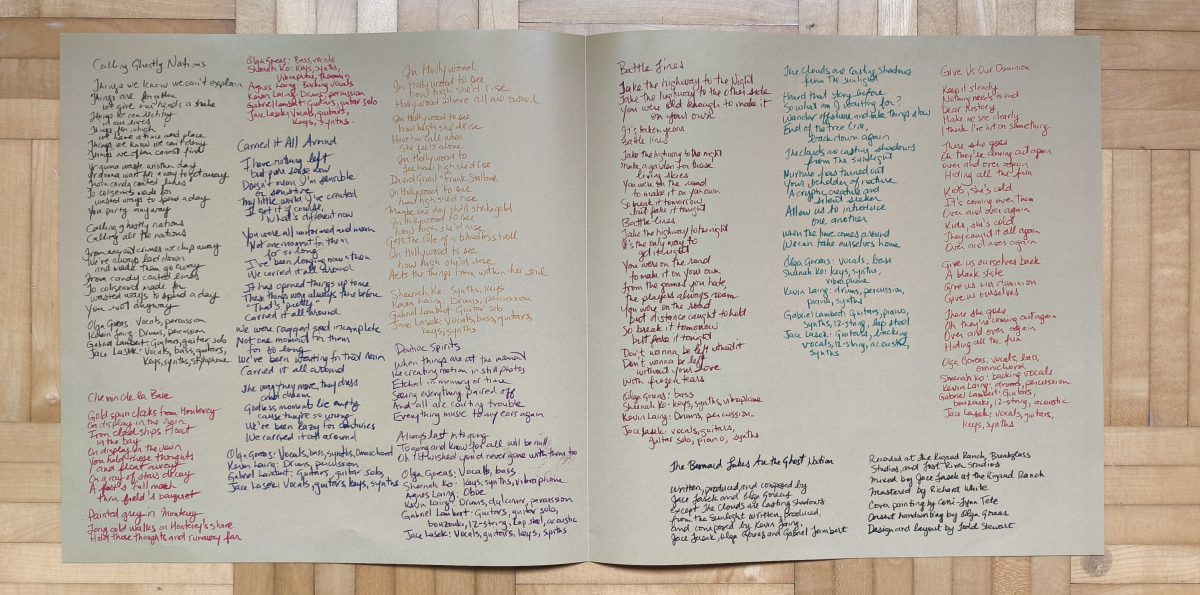 Calling Ghostly Nations
Things we know we can't explain
Things are forgotten
we give our heads a shake
Things we can destroy
in our lives
Things for which
we have a time and place
Things we know we can't deny
Things we often cannot find
Ur gonna waste another day
Ur gonna want an way to get away
From candy coated lines
To coliseums made for
wasted ways to spend a day
You party anyway
Calling ghostly nations
Calling all the nations
From any art crimes we chip away
We've always laid down
and made them go away
From candy coated lines
To coliseums made for
wasted ways to spend a day
You anyway
Olga Goreas: Vocals, percussion
Kevin Laing: Drums, percussion
Gabriel Lambert: Guitars, guitar solo
Jace Lasek: Vocals, bass, guitars,
keys, synths, stylophone
Chemin de la Baie
Gold spun cloaks from Monterey
On display in the rain
Iron clad ships float
in the bay
On display in the rain
You hold these thoughts
and float away
On a ray of stars decay
A poet's full match
thru field's bouquet
Painted grey in Monterey
Long cold walks on Monterey's shore
Hold those thoughts and runaway far
Olga Goreas: Bass, vocals
Sheenah Ko: Keys, synths,
Vibraphone, theremin
Agnes Laing: Backing vocals
Kevin Laing: Drums, percussion
Gabriel Lambert: Guitars, guitar solo
Jace Lasek: Vocals, guitars,
keys, synths
Carried It All Around
I have nothing left
but pure sense now
Doesn't mean I'm sensible
or sensitive
My little world I've created
I get it of course,
what's different now
You were all unformed and mean
Not one moment for them
for so long
I've been longing now then
We carried it all around
It has opened things up to me
These things were always there before
"That's pretty"
Carried it all around
We were ragged and incomplete
Not one moment for them
for so long
We've been waiting for that rain
Carried it all around
The way they move, they dress
and dream
Godless morals lie empty
cause they're so wrong
We've been lazy for centuries
We carried it all around
Olga Goreas: Vocals, bass, synths, Omnichord
Kevin Laing: Drums, percussion
Gabriel Lambert: Guitars, guitar solo,
Jace Lasek: Vocals, guitars, keys, synths
In Hollywood
In Hollywood to see
how high she'd rise
Hollywood where all are owned
In Hollywood to see
how high she'd rise
Have her all when
she feels alone
In Hollywood to
see how high she'd rise
David Grant Frank Stallone
In Hollywood to see
how high she'd rise
Maybe one day she'll strike gold
In Hollywood to see
how high she'd rise
Gets the role of a bloodless troll
In Hollywood to see
how high she'd rise
Acts the things from within her soul
Sheenah Ko: Synths, keys
Kevin Laing: Drums, percussion
Gabriel Lambert: Guitar solo
Jace Lasek: Vocals, bass, guitars,
keys, synths
Zodiac Spirits
When things are at the moment
Recreating motion in still photos
Etched in memory or time
Seeing everything paired off
And all are courting trouble
Every thing music to my ears again
Always last in going
To going and know for all will be null
Oh I finished you'd never gone with them too
Olga Goreas: Vocals, bass
Sheenah Ko: Keys, synths, vibraphone
Agnes Laing: Oboe
Kevin Laing: Drums, dulcimer, percussion
Gabriel Lambert: Guitars, guitar solo,
bouzouki, 12-string, lap steel, acoustic
Jace Lasek: Vocals, guitars, keys, synths
Battle Lines
Take the highway to the night
Take the highway to the other side
You were old enough to make it
on your own
It's taken years
Battle lines
Take the highway to the night
Make a garden for those
living skies
You were on the road
to make it on your own
So break it tomorrow
but fake it tonight
Battle lines
Take the highway to the night
It's the only way to
get it right
You were on the road
to make it on your own
From the games you hate
the players always roam
You were on the road
but distance caught to hold
So break it tomorrow
but fake it tonight
Don't wanna be left without it
Don't wanna be left
without your love
With frozen tears
Olga Goreas: bass
Sheenah Ko: Keys, synths, vibraphone
Kevin Laing: Drums, percussion
Jace Lasek: vocals, guitars,
guitar solo, piano, synths
The Clouds are Casting Shadows
from the Sunlight
Heard that story before
So what am I waiting for?
Wander offshore and take things slow
End of the tree line,
back down again
The clouds are casting shadows
from the sunlight
Nurture has turned out
Your beholder of nature
A cryptic creature and
silent seeker
Allow us to introduce
one another
When the time comes around
We can take ourselves home
Olga Goreas: Vocals, bass
Sheenah Ko: keys, synths,
vibraphone
Kevin Laing: drums, percussion,
piano, synths
Gabriel Lambert: Guitars, piano,
Synths, 12-string, lap steel
Jace Lasek: Guitars, backing
vocals, 12-string, acoustic,
synths
Give Us Our Dominion
Keep it steady
Nothing needs to end
Dear history
Make me see clearly
I think I've hit on something
There she goes
Oh they're coming out again
over and over again
Hiding all the fun
Kids, she's cold
It's coming over them
Over and over again
Kids, she's cold
They caught it all again
Over and over again
Give us ourselves back
A blank slate
Give us our dominion
Give us ourselves
There she goes
Oh they're coming out again
Over and over again
Hiding all the fun
Olga Goreas, vocals, bass,
omnichord
Sheenah Ko: backing vocals
Kevin Laing: drums, percussion
Gabriel Lambert: Guitars,
bouzouki, 12-string, acoustic
Jace Lasek: vocals, guitars,
keys, synths
The Besnard Lakes Are the Ghost Nation
Written, produced and composed by
Jace Lasek and Olga Goreas
except The Clouds are Casting Shadows
from the Sunlight written, produced,
and composed by Kevin Laing,
Jace Lasek, Olga Goreas and Gabriel Lambert
Recorded at the Rigaud Ranch, Breakglass
Studios, and Lost River Studios
Mixed by Jace Lasek at the Rigaud Ranch
Mastered by Richard White
Cover painting by Corri-Lynn Tetz
Insert handwriting by Olga Goreas
Design and layout by Todd Stewart